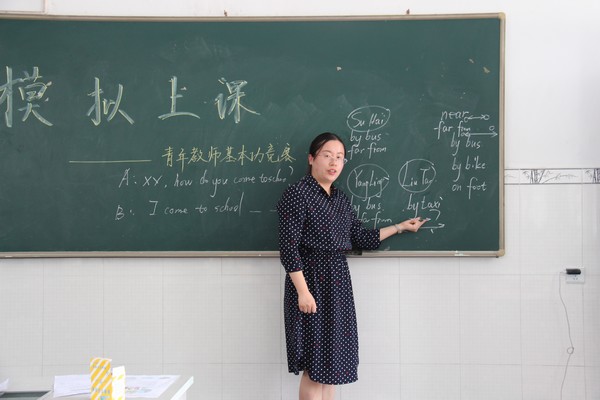 模拟上课
青年教师基本功竞赛
A: XX, how do you come to school?
B: I come to school
Su Hai
by bus
far from
Yang Ling
by bus
far from
Liu Tao
by taxi
near
far from
by bus
by bike
on foot